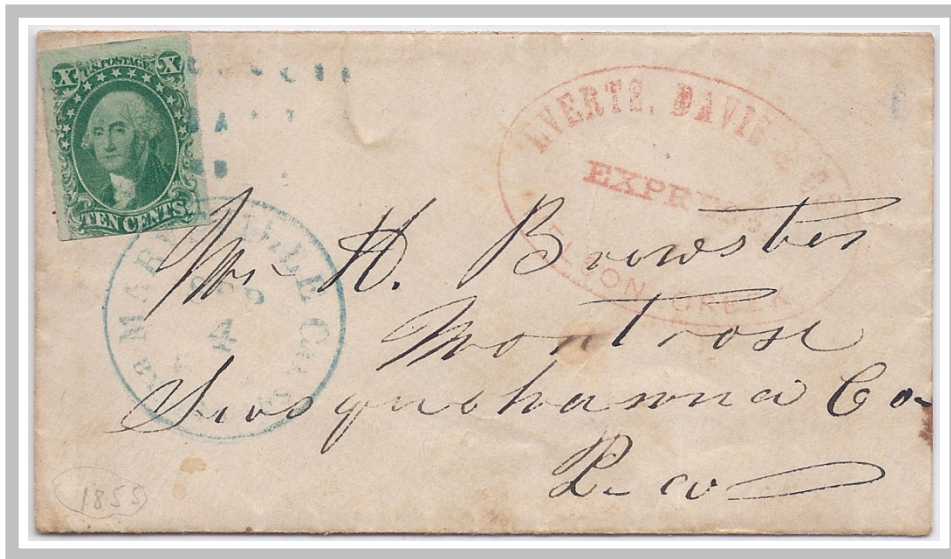 X U.S. POSTAGE X
TEN CENTS
EVERTS, DAVIS &
EXPRESS
CREEK
MARYSVILLE Cal
SEP
4
Mr H. Brewster
Montrose
Susquehanna Co
Pa
1855